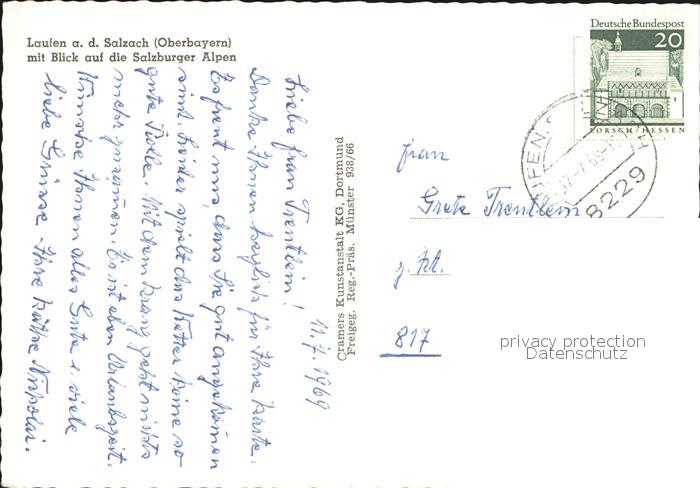 Laufen a. d. Salzach (Oberbayern)
mit Blick auf die Salzburger Alpen
11.7.1969
Liebe Frau Trentlein!
Danke Ihnen herzlich für Ihre Karte.
Es freut uns, dass Sie gut angekommen
sind. Leider spielt das Wetter keine so
gute Rolle. Mit dem Kranz geht nichts
mehr zusammen. Es ist eben Urlaubszeit.
Wünsche Ihnen alles Gute u. viele
liebe Grüsse Ihre Käthe
Cramers Kunstanstalt KG, Dortmund
Freigeg. Reg.-Präs. Münster 938/66
Deutsche Bundespost
20
LORSCH/HESSEN
8229
Frau
Greta Trentlein
z. Zt.
817
privacy protection
Datenschutz